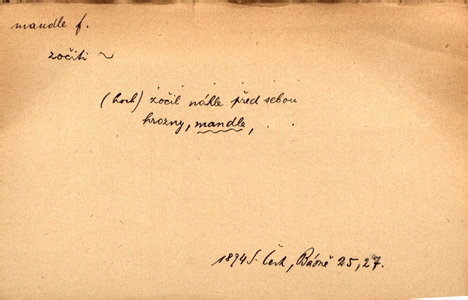 mandle f.
zočiti ~
(hoch) zočil náhle před sebou
hrozny, mandle, . .
1894 S. Čech, Básně 25, 27.